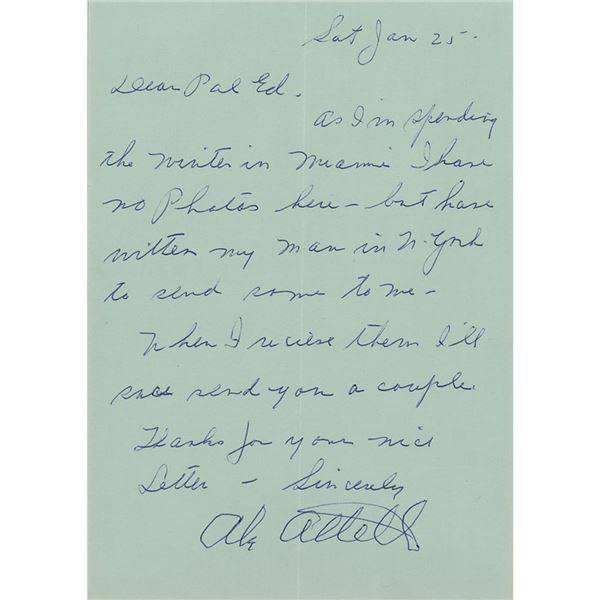 Sat Jan 25.
Dear Pal Ed.
As I'm spending
the winter in Miami I have
no Photos here - but have
written my man in N. York
to send some to me -
When I recieve them I'll
send you a couple.
Thanks for your nice
Letter - Sincerely
Abe Attell